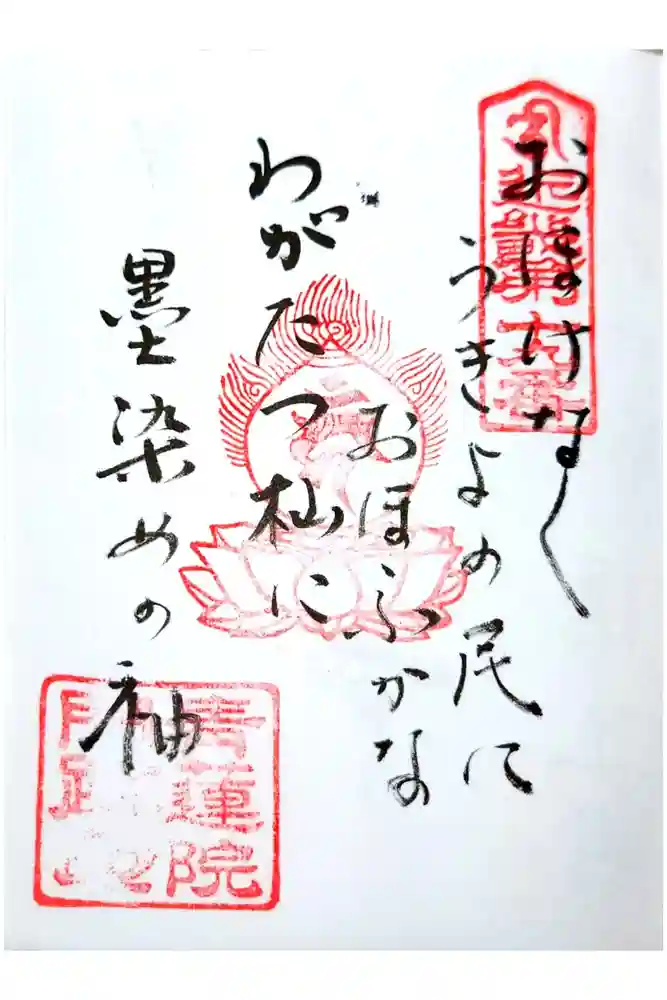 おほけなく
うきよの民に
おほふかな
わがたつ杣に
墨染めの袖
青蓮院
門跡